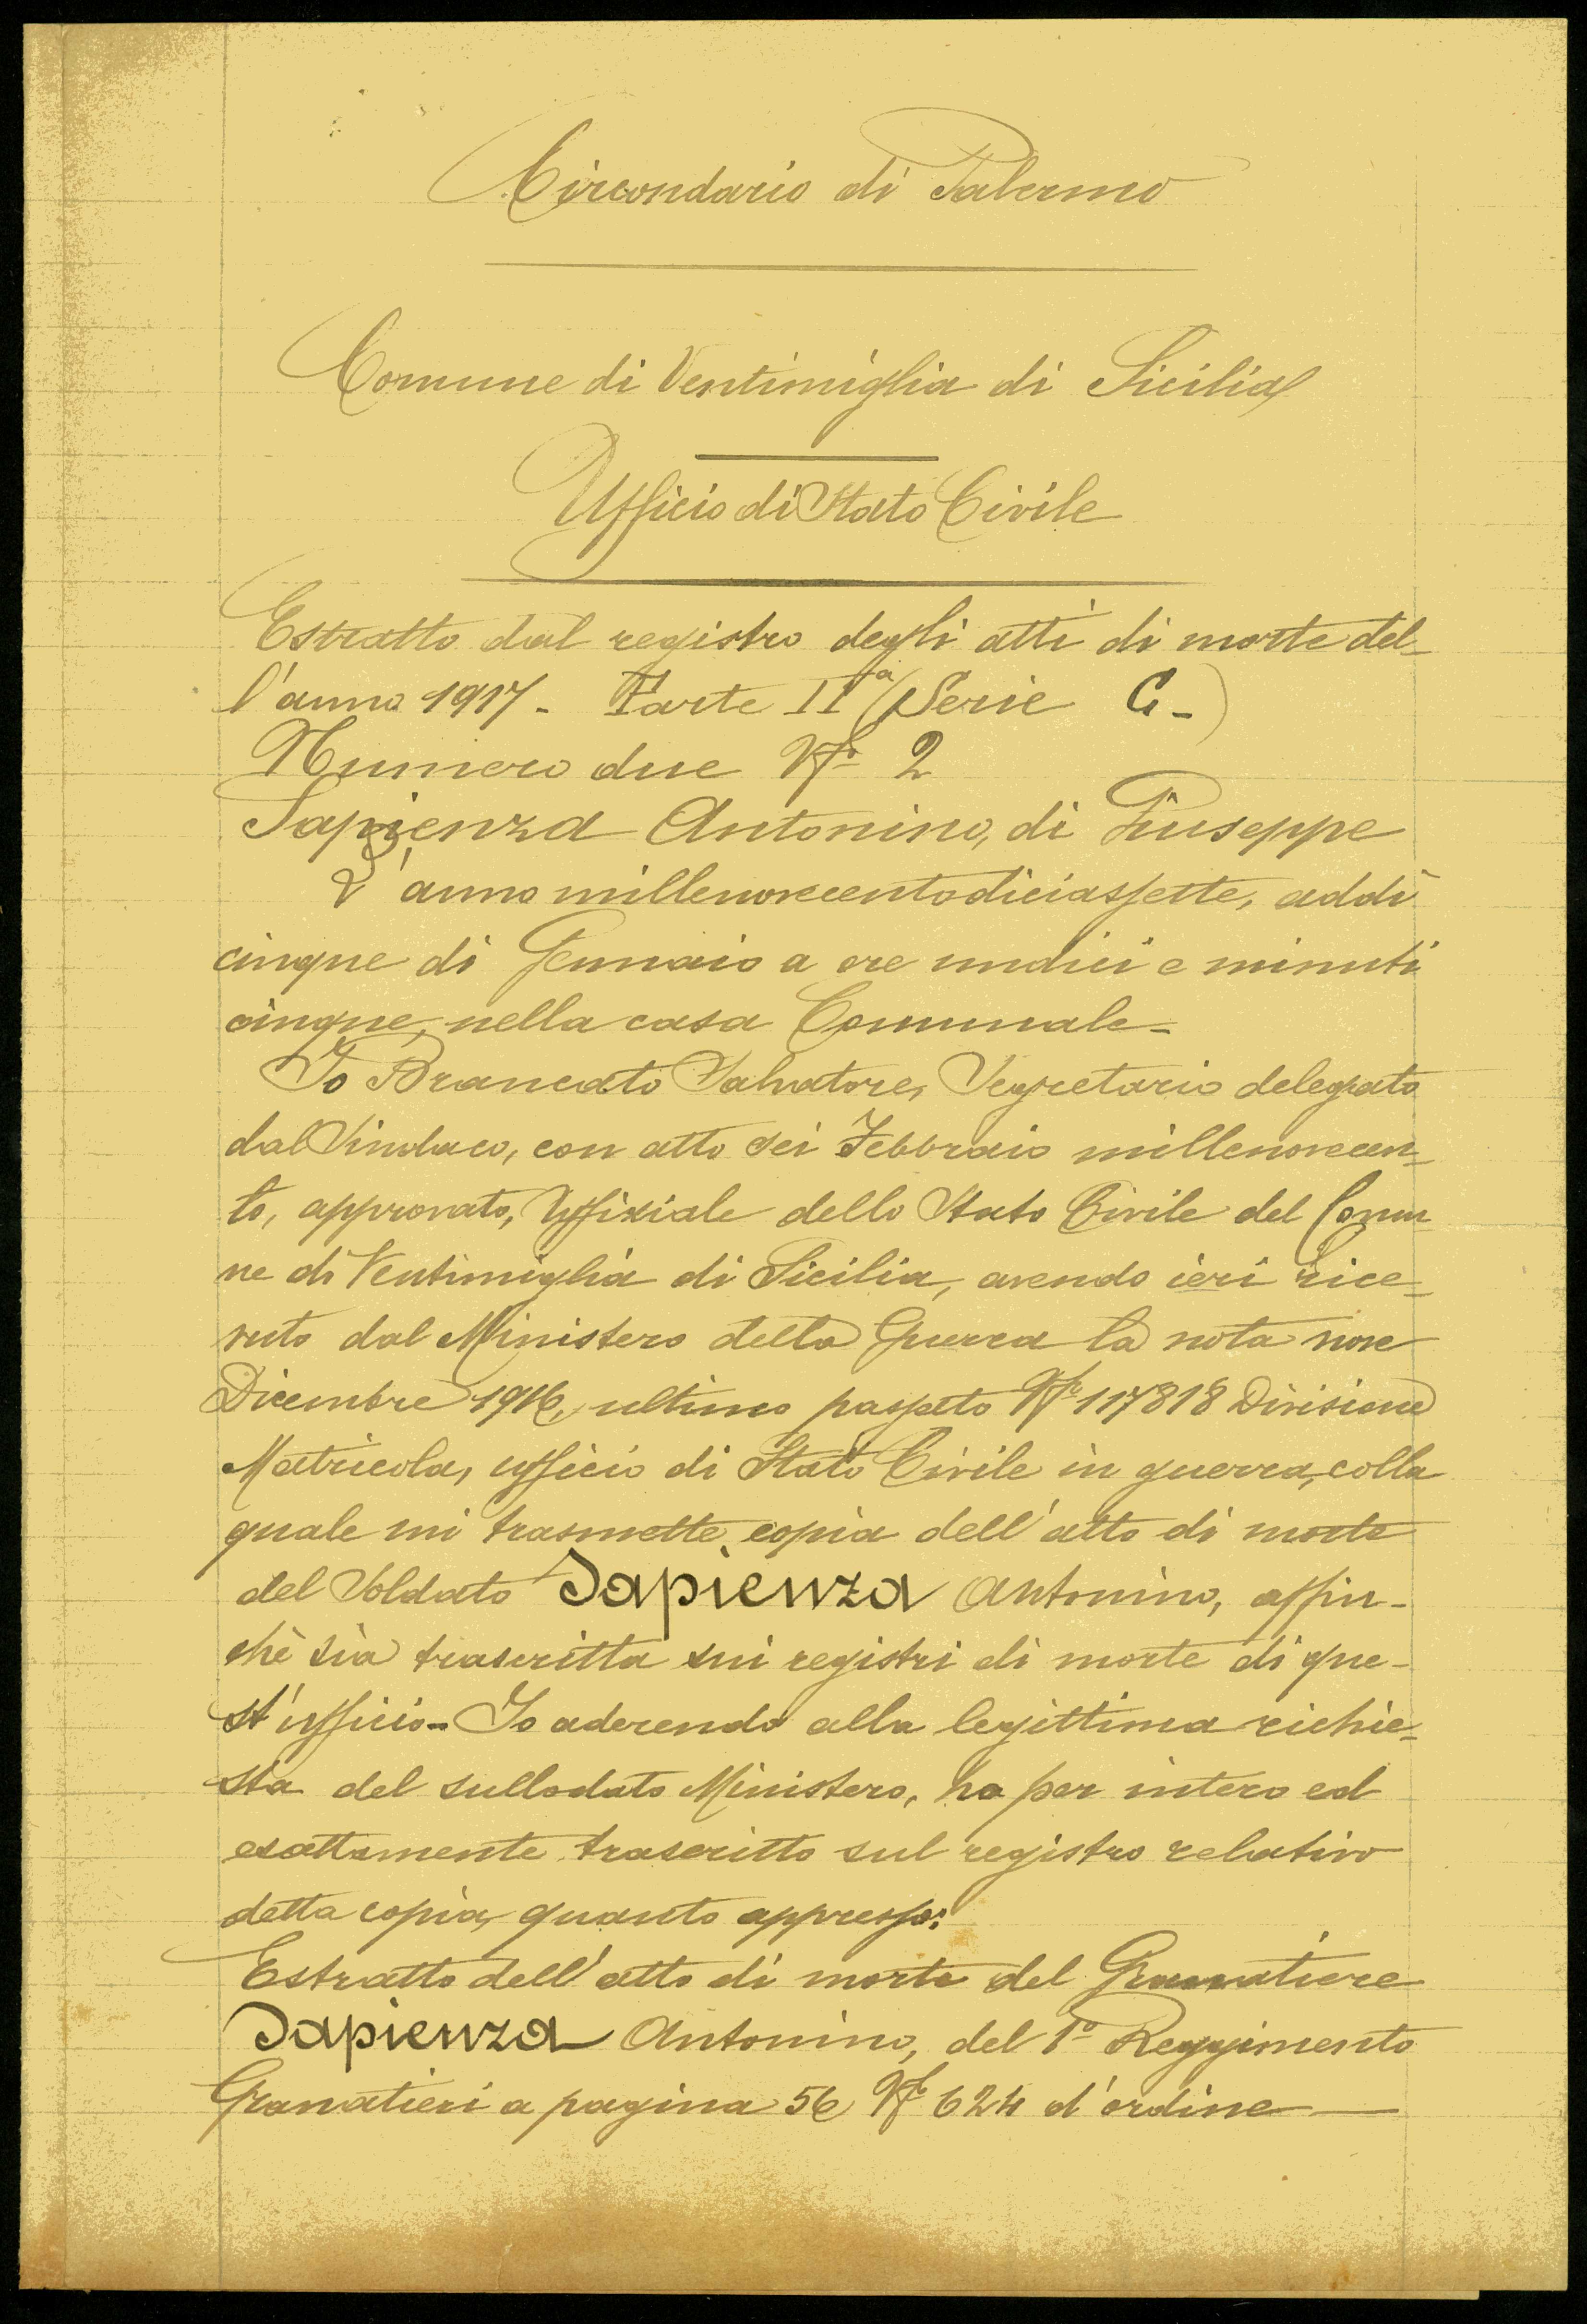 Circondario di Palermo
Comune di Ventimiglia di Sicilia
Ufficio di Stato Civile
Estratto dal registro degli atti di morte del-
l'anno 1917 - Parte IIa (Serie C -)
Numero due No 2
Sapienza Antonino, di Giuseppe
L'anno millenovecentodiciassette, addì
cinque di Gennaio a ore undici e minuti
cinque, nella casa Comunale -
Io Brancato Salvatore, Segretario delegato
dal Sindaco, con atto sei Febbraio millenovecen-
to, approvato, Uffiziale dello Stato Civile del Comu
ne di Ventimiglia di Sicilia, avendo ieri rice-
vuto dal Ministero della Guerra la nota nove
Dicembre 1916, ultimo passato No 117818 Divisione
Matricola, ufficio di Stato Civile in guerra, colla
quale mi trasmette copia dell'atto di morte
del Soldato Sapienza Antonino, affin-
chè sia trascritta sui registri di morte di que-
st'ufficio - Io aderendo alla legittima richie-
sta del sullodato Ministero, ho per intero ed
esattamente trascritto sul registro relativo
detta copia, quanto appresso:
Estratto dell'atto di morte del Granatiere
Sapienza Antonino, del 1o Reggimento
Granatieri a pagina 56 No 624 d'ordine —